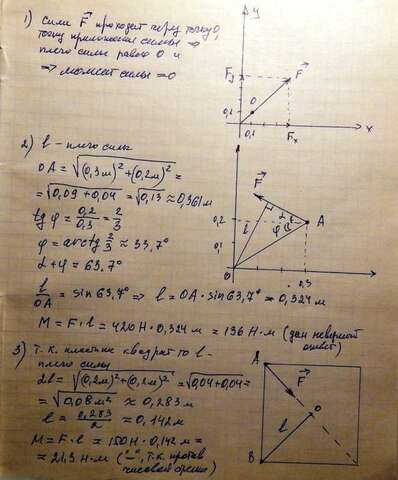 1) Сила F⃗ проходит через точку O,
точку приложения силы ⇒
плечо силы равно 0 и
⇒ момент силы = 0
y
Fy
F⃗
0,2
O
0,1
Fx
x
2) l - плечо силы
OA = √((0,3м)² + (0,2м)²) =
= √(0,09 + 0,04) = √0,13 ≈ 0,361 м
tg φ = 0,2/0,3 = 2/3
φ = arctg 2/3 ≈ 33,7°
α + φ = 63,7°
l/OA = sin 63,7° ⇒ l = OA · sin 63,7° = 0,324 м
M = F · l = 420 Н · 0,324 м = 136 Н·м (дан неверный
ответ)
F⃗
0,2
l
α
φ
A
0,1
O
0,3
3) Т.к. пластина квадрат то l -
плечо силы
2l = √((0,2м)² + (0,2м)²) = √(0,04 + 0,04) =
= √0,08м² ≈ 0,283 м
l = 0,283/2 ≈ 0,142 м
M = F · l = 150 Н · 0,142 м =
= 21,3 Н·м ("-", т.к. против
часовой стрелки)
A
F⃗
O
l
B